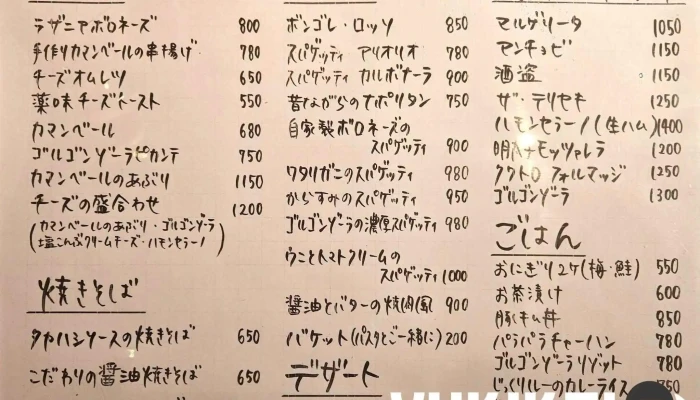 ラザニアボロネーズ 800
手作りカマンベールの串揚げ 780
チーズオムレツ 650
薬味チーズトースト 550
カマンベール 680
ゴルゴンゾーラピカンテ 750
カマンベールのあぶり 1150
チーズの盛合わせ 1200
(カマンベールのあぶり・ゴルゴンゾーラ
塩こんぶクリームチーズ・ハモンセラーノ)
焼きそば
タカハシソースの焼きそば 650
こだわりの醤油焼きそば 650
ボンゴレ・ロッソ 850
スパゲッティ アリオリオ 780
スパゲッティ カルボナーラ 900
昔ながらのナポリタン 750
自家製ボロネーズの
スパゲッティ 900
ワタリガニのスパゲッティ 980
からすみのスパゲッティ 950
ゴルゴンゾーラの濃厚スパゲッティ 980
ウニとトマトクリームの
スパゲッティ 1000
醤油とバターの焼肉風 900
バケット(パスタとご一緒に) 200
デザート
マルゲリータ 1050
アンチョビ 1150
酒盗 1150
ザ・テリヤキ 1250
ハモンセラーノ(生ハム) 1400
明太モッツァレラ 1200
クワトロ フォルマッジ 1250
ゴルゴンゾーラ 1300
ごはん
おにぎり2ケ(梅・鮭) 550
お茶漬け 600
豚キム丼 850
パラパラチャーハン 780
ゴルゴンゾーラリゾット 780
じっくりルーのカレーライス 750